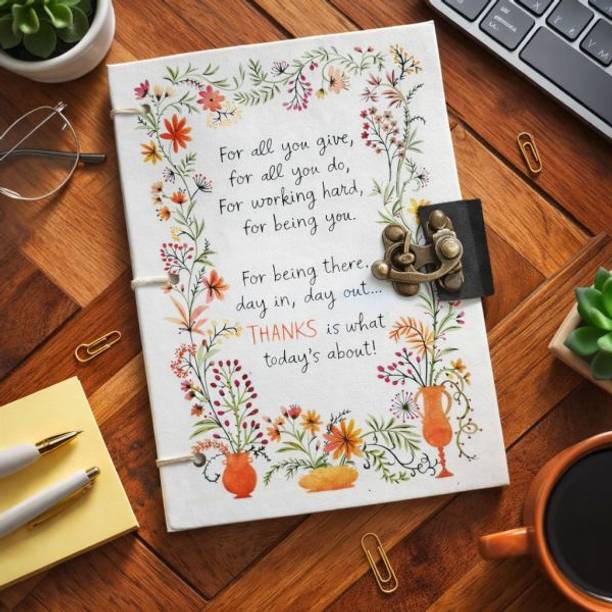 For all you give,
for all you do,
For working hard,
for being you.
For being there,
day in, day out...
THANKS is what
today's about!